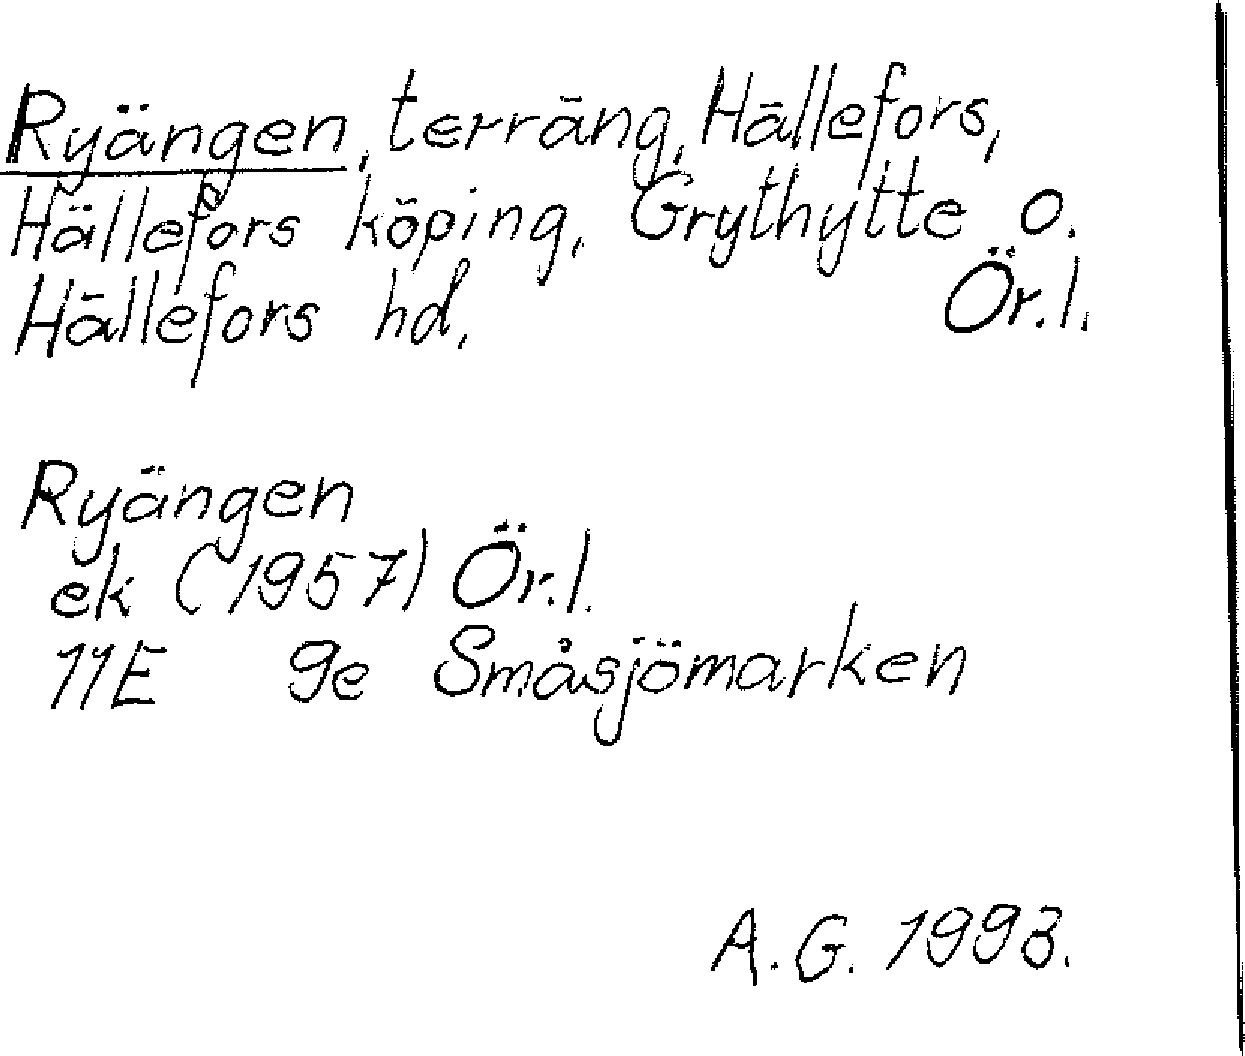 Ryängen, terräng, Hällefors,
Hällefors köping, Grythytte o.
Hällefors hd, Ör.l.
Ryängen
ek (1957) Ör.l.
11E 9e Småsjömarken
A.G. 1993.